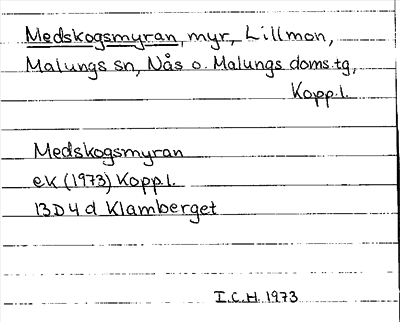 Medskogsmyran, myr, Lillmon,
Malungs sn, Nås o. Malungs doms.tg,
Kopp.l.
Medskogsmyran
ek (1973) Kopp.l.
13D4d Klamberget
I.C.H. 1973